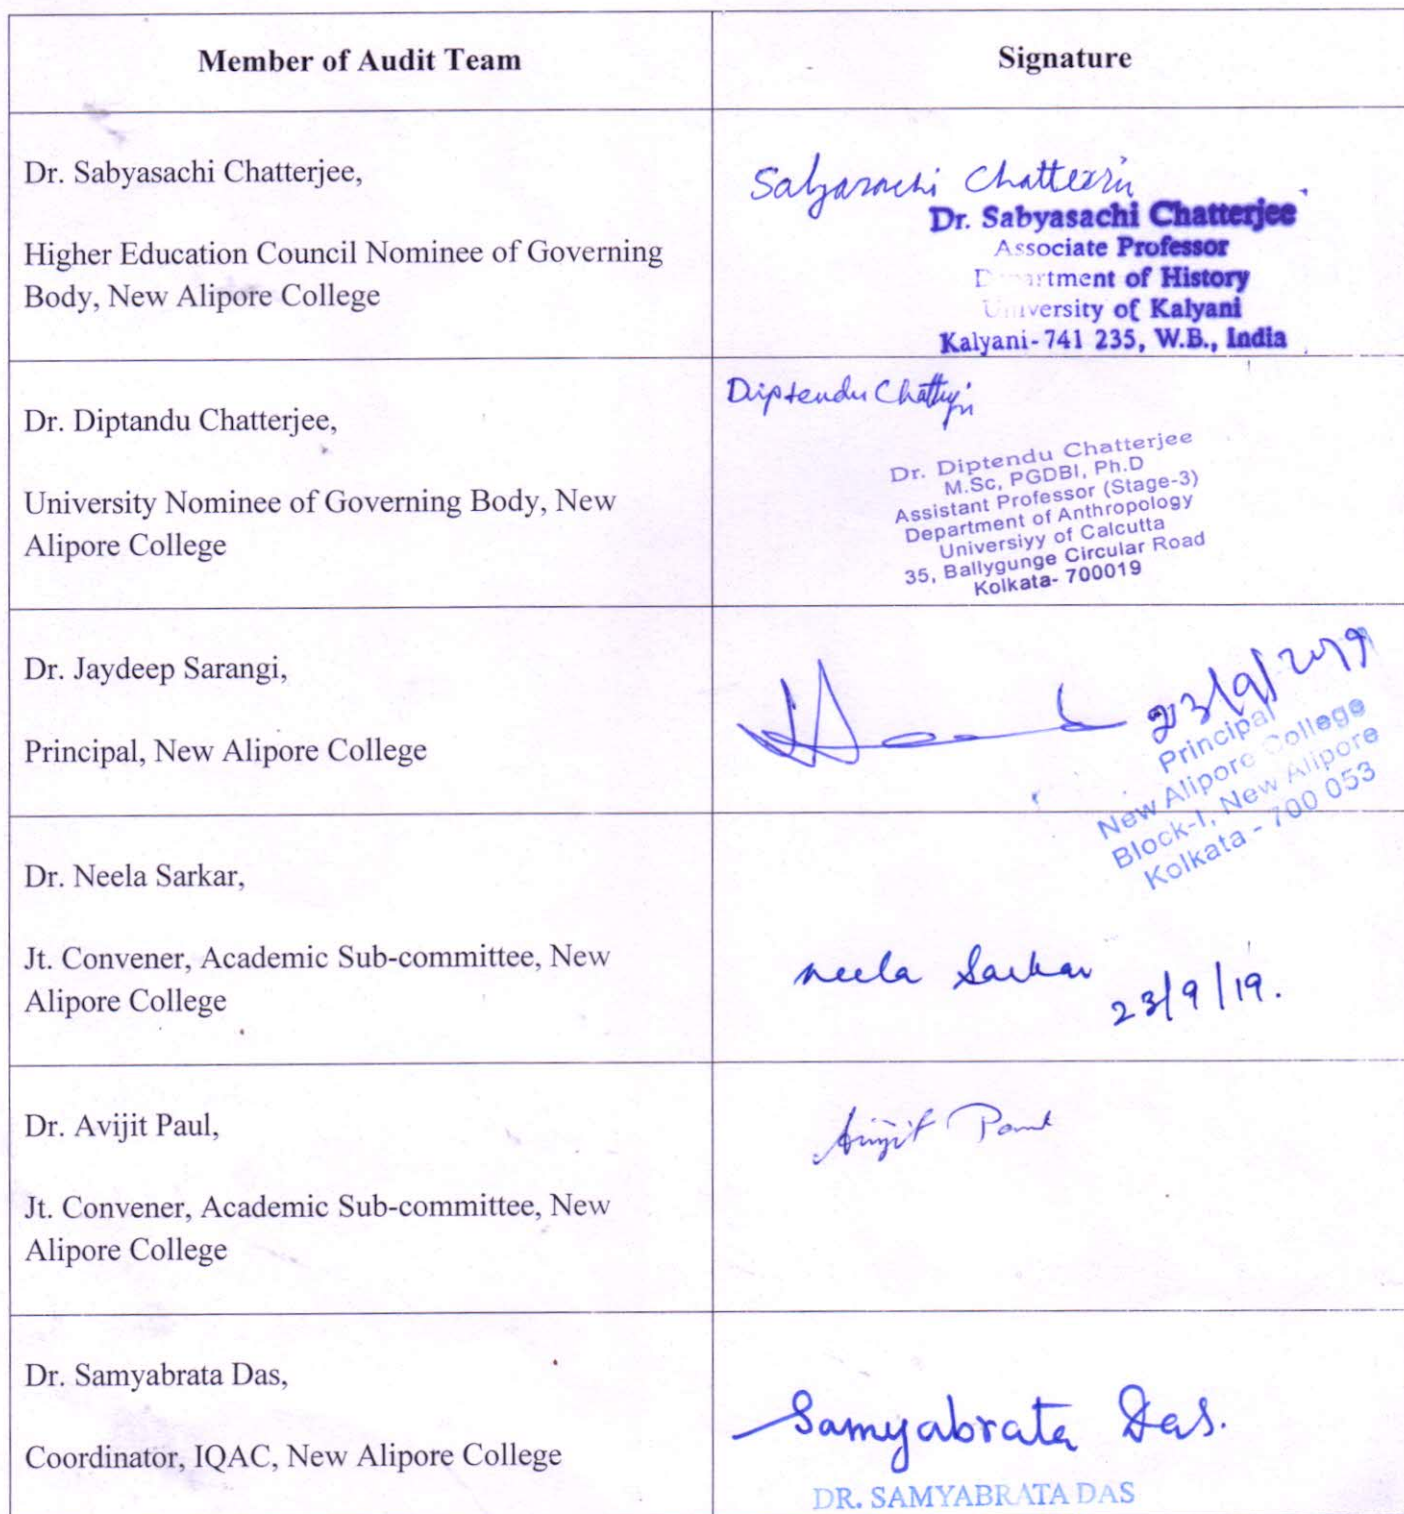 Member of Audit Team
Signature
Dr. Sabyasachi Chatterjee,
Higher Education Council Nominee of Governing
Body, New Alipore College
Sabyasachi Chatterjee
Dr. Sabyasachi Chatterjee
Associate Professor
Department of History
University of Kalyani
Kalyani-741 235, W.B., India
Dr. Diptandu Chatterjee,
University Nominee of Governing Body, New
Alipore College
Diptendu Chatterjee
Dr. Diptendu Chatterjee
M.Sc, PGDBI, Ph.D
Assistant Professor (Stage-3)
Department of Anthropology
Universiyy of Calcutta
35, Ballygunge Circular Road
Kolkata- 700019
Dr. Jaydeep Sarangi,
Principal, New Alipore College
23/9/2019
Principal
New Alipore College
Block-I, New Alipore
Kolkata - 700 053
Dr. Neela Sarkar,
Jt. Convener, Academic Sub-committee, New
Alipore College
Neela Sarkar
23/9/19.
Dr. Avijit Paul,
Jt. Convener, Academic Sub-committee, New
Alipore College
Avijit Paul
Dr. Samyabrata Das,
Coordinator, IQAC, New Alipore College
Samyabrata Das.
DR. SAMYABRATA DAS